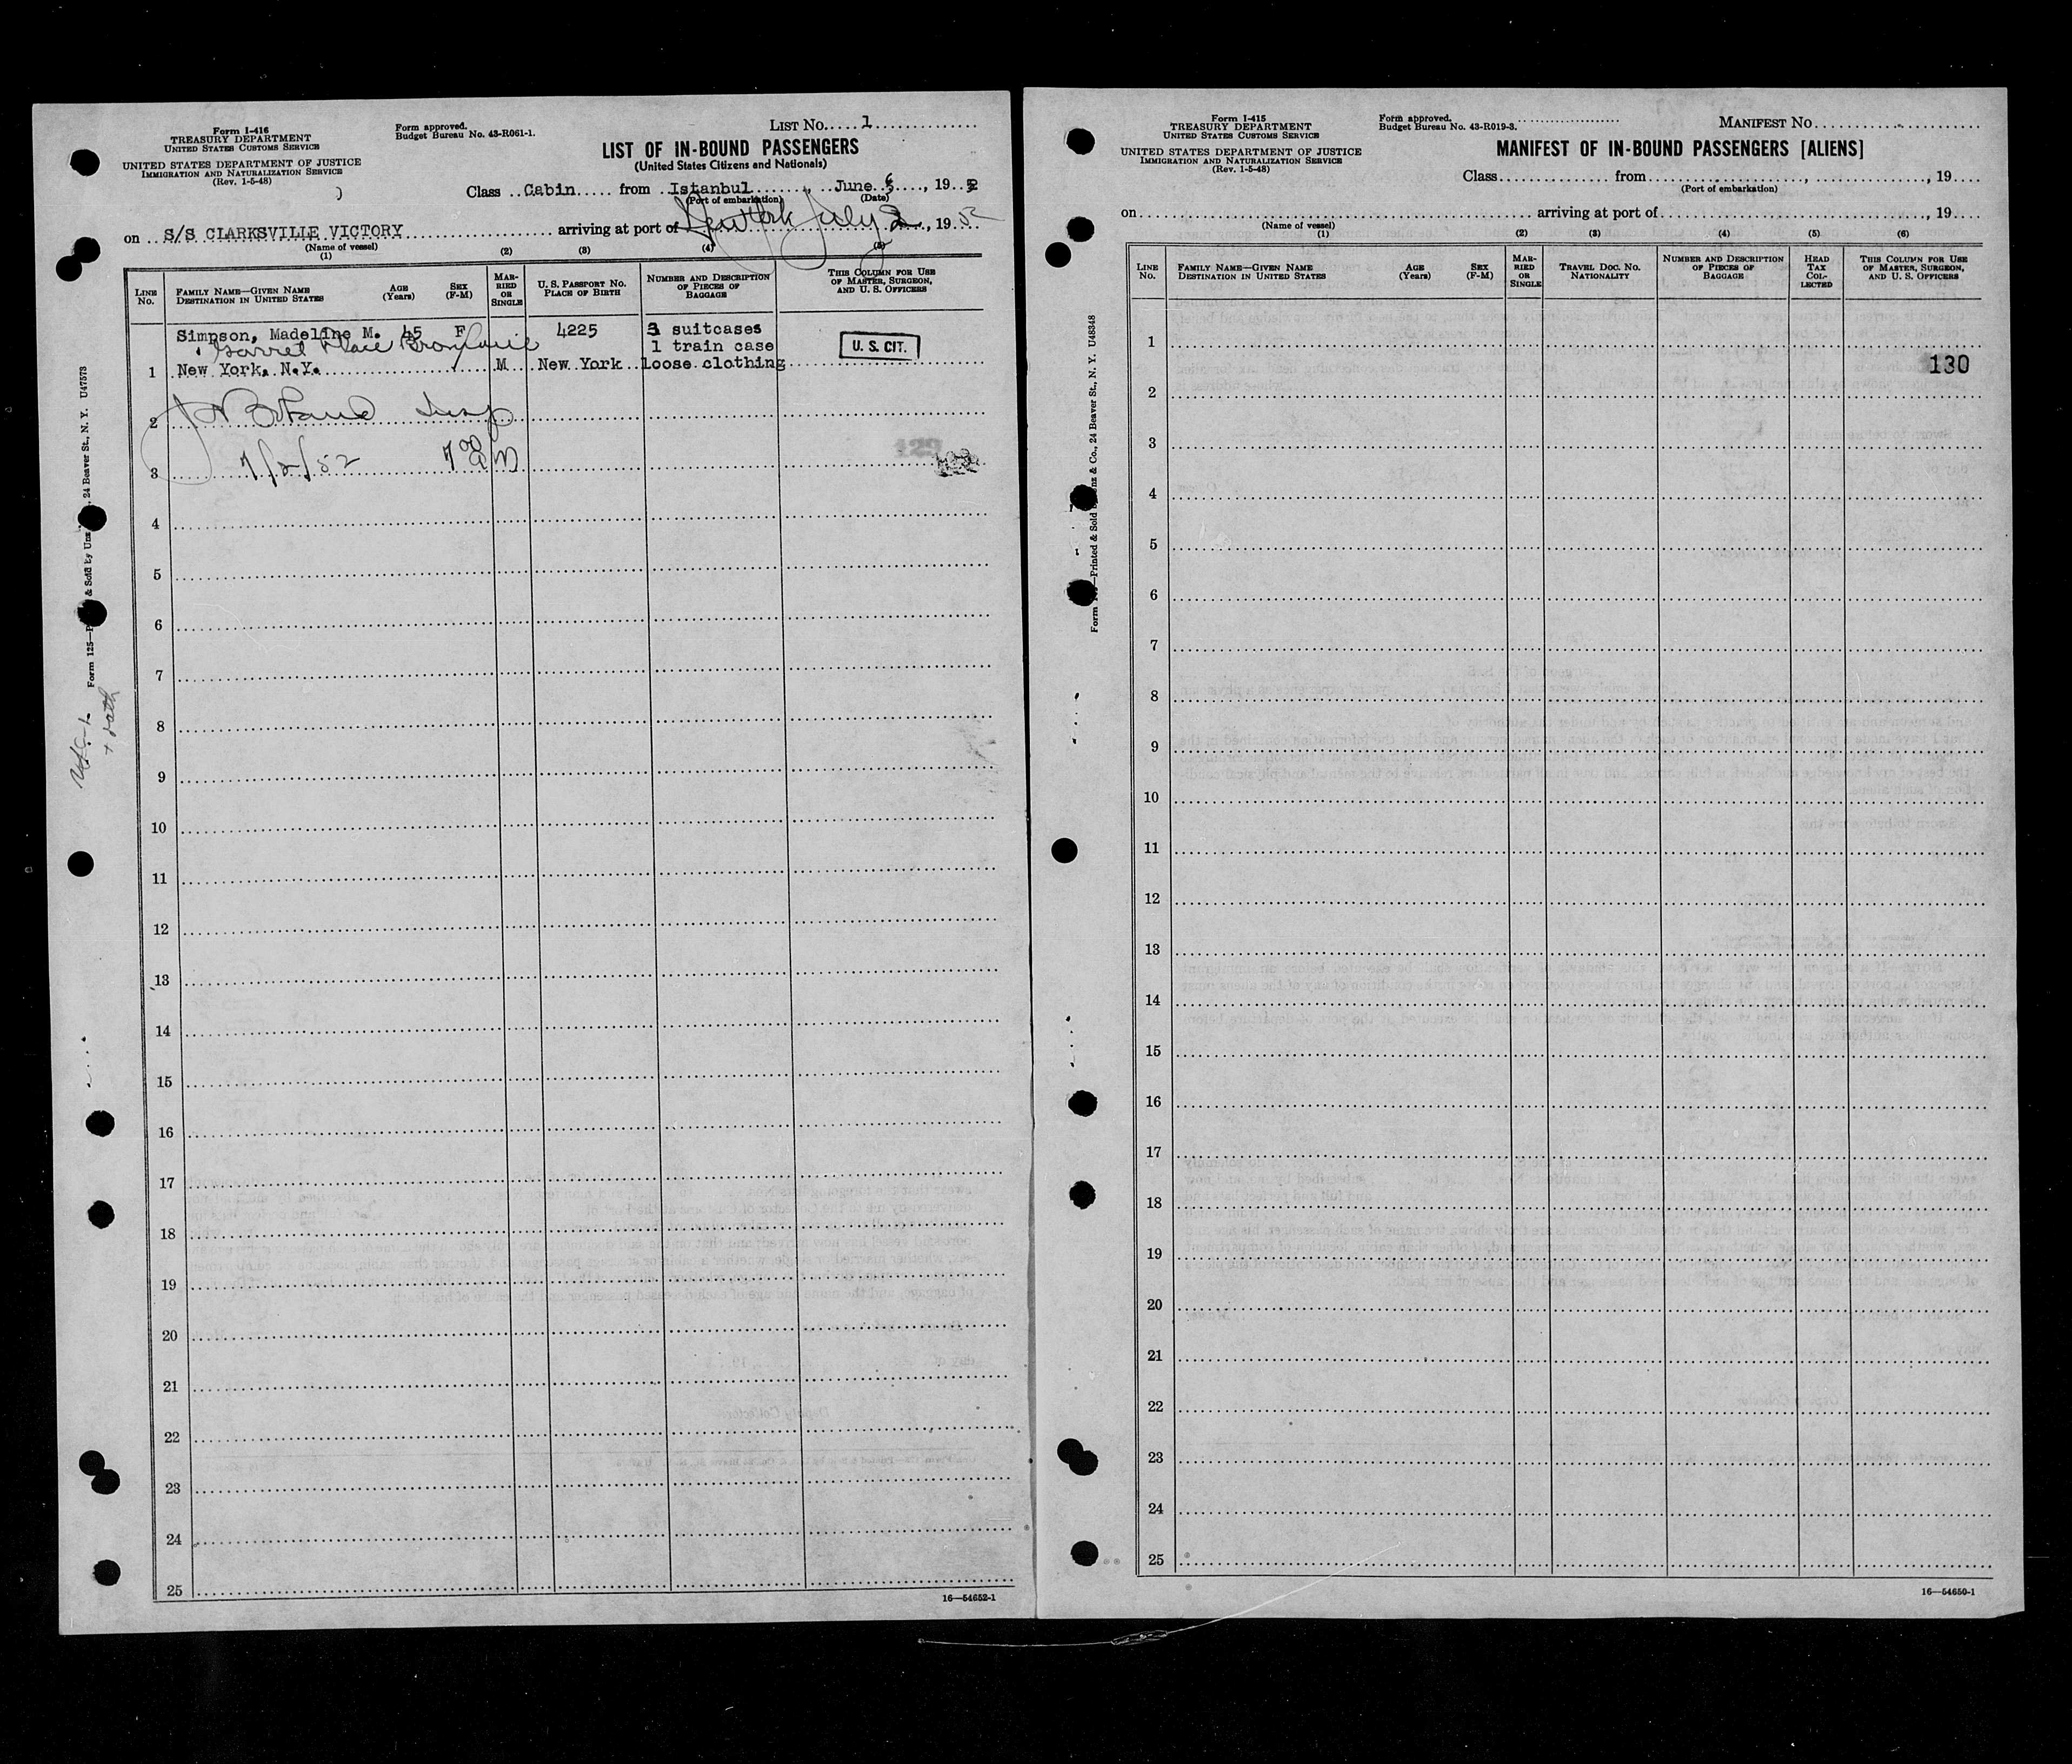 Form I-416
TREASURY DEPARTMENT
UNITED STATES CUSTOMS SERVICE
UNITED STATES DEPARTMENT OF JUSTICE
IMMIGRATION AND NATURALIZATION SERVICE
(Rev. 1-5-48)
Form approved.
Budget Bureau No. 43-R061-1.
LIST No. 1
LIST OF IN-BOUND PASSENGERS
(United States Citizens and Nationals)
Class Cabin from Istanbul, June 6, 1952
(Port of embarkation) (Date)
on S/S CLARKSVILLE VICTORY arriving at port of New York July 2, 1952
(Name of vessel)
(1) (2) (3) (4) (5)
LINE No. FAMILY NAME—GIVEN NAME DESTINATION IN UNITED STATES AGE (Years) SEX (F-M) MARRIED OR SINGLE U. S. PASSPORT No. PLACE OF BIRTH NUMBER AND DESCRIPTION OF PIECES OF BAGGAGE THIS COLUMN FOR USE OF MASTER, SURGEON, AND U. S. OFFICERS
Simpson, Madeline M. 45 F 4225 3 suitcases
Place 1 train case U. S. CIT.
1 New York, N.Y. M New York loose clothing
2 Insp
3 7/2/52 7 00 am
4
5
6
7
8
9
10
11
12
13
14
15
16
17
18
19
20
21
22
23
24
25
16—54652-1
24 Beaver St., N. Y. U47573
Form 125—
Form I-415
TREASURY DEPARTMENT
UNITED STATES CUSTOMS SERVICE
UNITED STATES DEPARTMENT OF JUSTICE
IMMIGRATION AND NATURALIZATION SERVICE
(Rev. 1-5-48)
Form approved.
Budget Bureau No. 43-R019-3.
MANIFEST No.
MANIFEST OF IN-BOUND PASSENGERS [ALIENS]
Class from , , 19
(Port of embarkation)
on arriving at port of , 19
(Name of vessel)
(1) (2) (3) (4) (5) (6)
LINE No. FAMILY NAME—GIVEN NAME DESTINATION IN UNITED STATES AGE (Years) SEX (F-M) MARRIED OR SINGLE TRAVEL DOC. No. NATIONALITY NUMBER AND DESCRIPTION OF PIECES OF BAGGAGE HEAD TAX COLLECTED THIS COLUMN FOR USE OF MASTER, SURGEON, AND U. S. OFFICERS
1
130
2
3
4
5
6
7
8
9
10
11
12
13
14
15
16
17
18
19
20
21
22
23
24
25
16—54650-1
Printed & Sold & Co., 24 Beaver St., N. Y. U48348